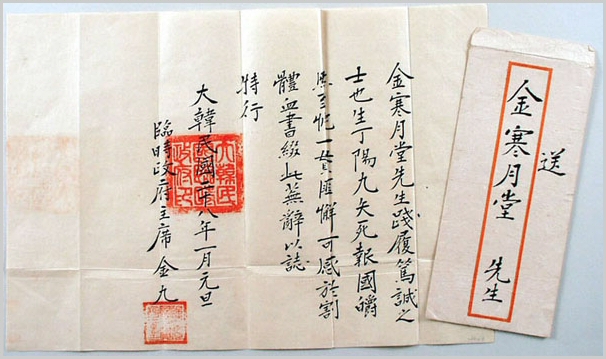 送
金寒月堂 先生
金寒月堂先生踐履篤誠之
士也生丁陽九矢死報國皭
至忱一匪懈可感於割
體血書綴此蕪辭以誌
特行
大韓民國二十八年一月元旦
臨時政府主席 金九